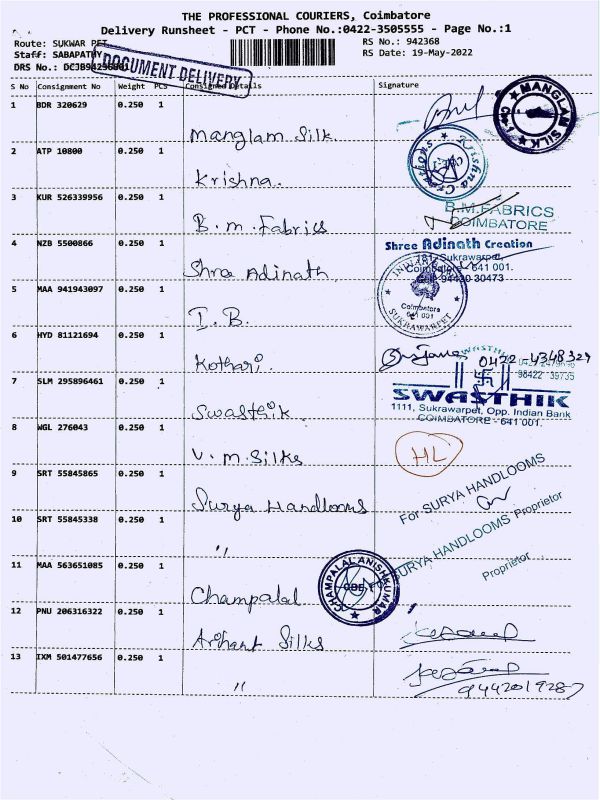 THE PROFESSIONAL COURIERS, Coimbatore
Delivery Runsheet - PCT - Phone No.:0422-3505555 - Page No.:1
Route: SUKWAR PET
RS No.: 942368
Staff: SABAPATHY
RS Date: 19-May-2022
DRS No.:
DOCUMENT DELIVERY
S No Consignment No Weight PCS Consigned Details Signature
1 BDR 320629 0.250 1
Manglam Silk
MANGLAM SILK
2 ATP 10800 0.250 1
Krishna.
Krishna Creations
3 KUR 526339956 0.250 1
B.m. Fabrics
B.M.FABRICS
COIMBATORE
4 NZB 5500866 0.250 1
Shree Adinath
Shree Adinath Creation
181, Sukrawarpet,
Coimbatore - 641 001.
Cell: 94430 30473
5 MAA 941943097 0.250 1
I. B.
Coimbatore
641 001
SUKRAWARPET
6 HYD 81121694 0.250 1
Kothari.
0422-4348329
7 SLM 295896461 0.250 1
Swasthik
SWASTHIK
98422 39735
SWASTHIK
1111, Sukrawarpet, Opp. Indian Bank
COIMBATORE - 641 001.
8 WGL 276043 0.250 1
V. m. Silks
HL
9 SRT 55845865 0.250 1
Surya Handlooms
For SURYA HANDLOOMS
10 SRT 55845338 0.250 1
"
SURYA HANDLOOMS Proprietor
Proprietor
11 MAA 563651085 0.250 1
Champalal
CHAMPALAL ANISHKUMAR
CBE
12 PNU 206316322 0.250 1
Arihant Silks
13 IXM 501477656 0.250 1
"
9442019287